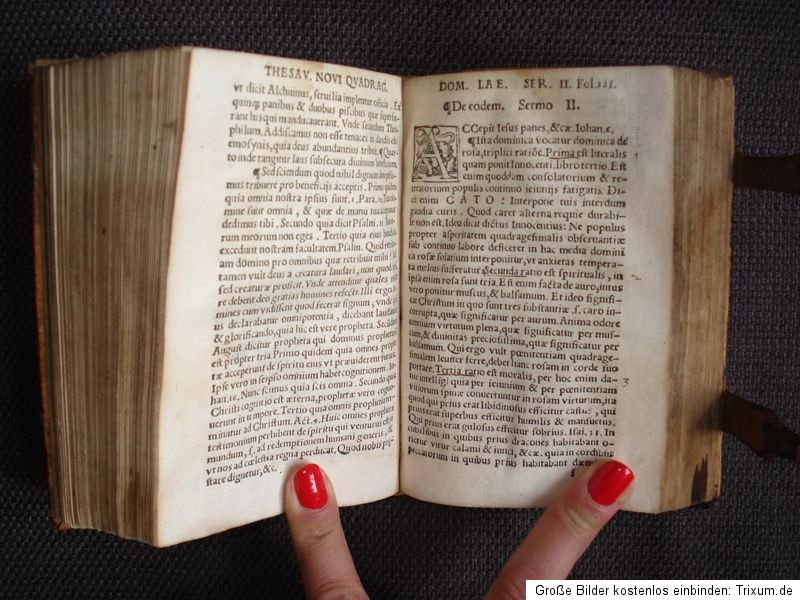 THESAV. NOVI QVADRAG.
vt dicit Alchuinus, seruilia implentur officia. Ex
quinq; panibus & duobus piscibus quæ superfue-
rant his qui manducauerant. Vnde secundum Theo
philum. Addiscamus non esse tenaces in dandis elee
mosynis, quia deus abundantius tribuit. ¶Quar
to inde tangitur laus subsecuta diuinum
¶Sed sciendum quod nihil dignum possu-
mus tribuere pro beneficijs acceptis. Primo quidem
quia omnia nostra ipsius sunt. 1. Para. Tua do-
mine sunt omnia, & quæ de manu tua accepimus
dedimus tibi. Secundo quia dicit Psalm.
rum meorum non eges. Tertio quia eius beneficia
excedunt nostram facultatem. Psalm. Quid retribu
am domino pro omnibus quæ retribuit mihi?
tamen vult deus a creatura laudari, non quod
sed creaturæ proficit. Vnde attenditur quales
re debent deo gratias homines refecti. Illi ergo ho-
mines cum vidissent quod fecerat signum, vnde
us declarabatur omnipotentia, dicebant laudando
& glorificando, quia hic est vere propheta. Secundum
August. dicitur propheta qui dominus prophetarum
est propter tria Primo quidem quia omnes prophe
tæ acceperunt de spiritu eius vt præuiderent futura.
Ipse vero in seipso omnium habet cognitionem. Io-
han. 16. Nunc scimus quia scis omnia. Secundo quia
Christi cognitio est æterna, prophetæ vero cogno-
uerunt in tempore. Tertio quia omnis prophetia ter
minatur ad Christum. Act. 4. Huic omnes prophetæ
testimonium perhibent de spiritu qui venturus est in
mundum, s. ad redemptionem humani generis, &
vt nos ad cœlestia regna perducat. Quod nobis præ-
stare dignetur, &c.
DOM. LAE. SER. II. Fol. 111.
¶De eodem. Sermo II.
ACCepit Iesus panes, &cæ. Iohan. 6.
¶Ista dominica vocatur dominica de
rosa, triplici ratiōe. Prima est literalis
quam ponit Innocenti. libro tertio. Est
enim quoddam consolatorium & re-
creatorium populis continuo ieiunijs fatigatis. Di-
cit enim CATO: Interpone tuis interdum
gaudia curis. Quod caret alterna requie durabi-
le non est. Ideo dicit dictus Innocentius: Ne populus
propter asperitatem quadragesimalis obseruantiæ
sub continuo labore deficeret in hac media domini
ca rosæ solatium interponitur, vt anxietas tempera-
ta melius sufferatur. Secunda ratio est spiritualis, in
ipsa enim rosa sunt tria. Est enim facta de auro, intus
vero ponitur muscus, & balsamum. Et ideo signifi-
cat Christum in quo sunt tres substantiæ .s. caro in-
corrupta, quæ significatur per aurum. Anima odore
omnium virtutum plena, quæ significatur per mus-
cum, & diuinitas preciosissima, quæ significatur per
balsamum. Qui ergo vult pœnitentiam quadrage-
simalem leuiter ferre, debet hanc rosam in corde suo
portare. Tertia ratio est moralis, per hoc enim da-
tur intelligi quia per ieiunium & per pœnitentiam
vitiorum spinæ conuertuntur in rosam virtutum, ita
quod qui prius erat libidinosus efficitur castus, qui
prius erat superbus efficitur humilis & mansuetus.
Qui prius erat gulosus efficitur sobrius. Isai. 35. In
cubilibus in quibus prius dracones habitabant o-
rietur viror calami & iunci, &cæ. quia in cordibus
peccatorum in quibus prius habitabant dæm
Große Bilder kostenlos einbinden: Trixum.de